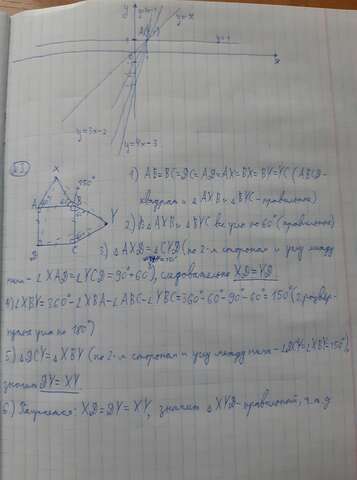 y
y=2x-1
y=x
A(1;1)
y=1
x
y=3x-2
y=4x-3
№3
X
150°
A
B
60°
60°
Y
D
C
1) AB=BC=DC=AD=AX=BX=BY=YC (ABCD-
квадрат и △AXB и △BYC-правильные)
2) В △AXB и △BYC все углы по 60° (правильные)
3) △AXD=△CYD (по 2-м сторонам и углу между
ними - ∠XAD=∠YCD=90°+60°), следовательно XD=YD
4) ∠XBY=360°-∠XBA-∠ABC-∠YBC=360-60-90-60=150° (2 развёр-
нутых угла по 180°)
5) △DCY=△XBY (по 2-м сторонам и углу между ними - ∠DCY=∠XBY=150°),
значит DY=XY.
6) Получается: XD=DY=XY, значит △XYD-правильный, ч.т.д